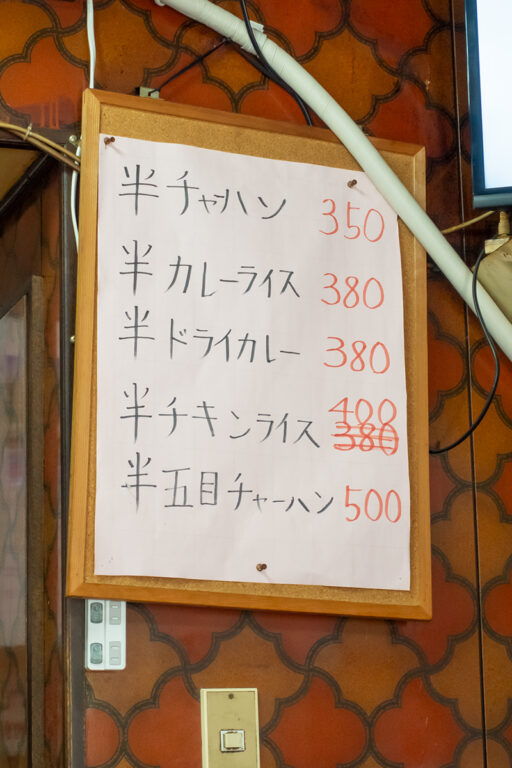 半チャハン 350
半カレーライス 380
半ドライカレー 380
半チキンライス 400
380
半五目チャーハン 500